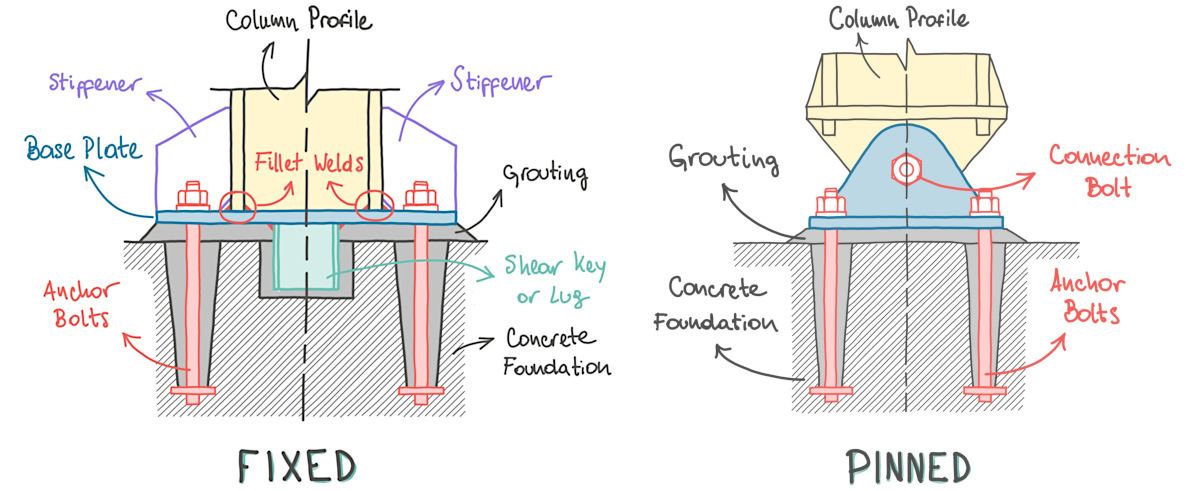 Column Profile
Stiffener
Stiffener
Base Plate
Fillet Welds
Grouting
Anchor
Bolts
Shear Key
or Lug
Concrete
Foundation
FIXED
Column Profile
Grouting
Connection
Bolt
Concrete
Foundation
Anchor
Bolts
PINNED